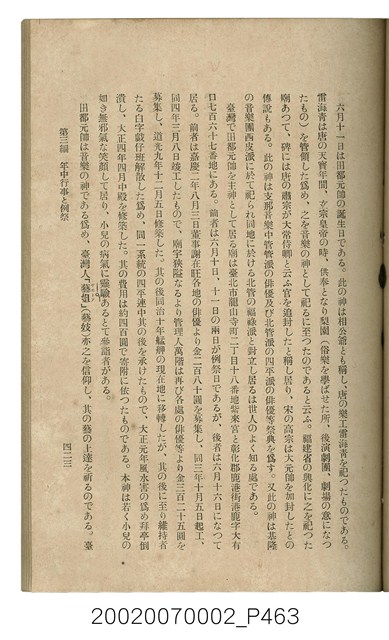 六月十一日は田都元帥の誕生日である。此の神は相公爺とも稱し、唐の樂工雷海青を祀つたものである。
雷海青は唐の天寶年間、玄宗皇帝の時、供奉となり梨園（俗樂を學ばせた所、後演劇團、劇場の意になつ
たもの）を管領した爲め、之を音樂の神として祀るに至つたのであると云ふ。福建省の興化に之を祀つた
廟あつて、碑には唐の肅宗が大常侍卿と云ふ官を追封したと稱し居り、宋の高宗は大元帥を加封したとの
傳說もある。此の神は支那音樂中管管派の俳優及び北管派の四平派の俳優等祭典を爲す。又此の神は基隆
の音樂團西皮派に於て祀られ同地に於ける北管の福祿派と對立し居るは世人のよく知る處である。
臺灣で田都元帥を主神として居る廟は臺北市龍山寺町二丁目十八番地紫來宮と彰化郡鹿港街港鹿字大有
口七百六十七番地にある。前者は六月十日、十一日の兩日が例祭日であるが、後者は六月十六日になつて
居る。前者は嘉慶二年八月三日董事謝在旺各地の俳優より金二百八十圓を募集し、同三年十月五日起工、
同四年三月八日竣工したもので、廟宇狹隘なるより管理人萬階は再び各處の俳優等より金三百二十五圓を
募集し、道光九年十二月五日修築した。其の後同治十年艋舺の現在地に移轉したが、其の後に至り維持者
たる白字戲仔班解散した爲め、同一系統の四平連中其の後を承けたもので、大正元年風水害の爲め拜亭倒
潰し、大正四年四月中殿を修築した。其の費用は約四百圓で寄附に依つたものである。本神は若く小兒の
如き無邪氣な笑顏して居り、小兒の病氣に靈驗あるとて參詣者がある。
田都元帥は音樂の神である爲め、臺灣人「藝妲」（藝妓）亦之を信仰し、其の藝の上達を祈るのである。臺
第三編　年中行事と例祭
四二三
20020070002_P463